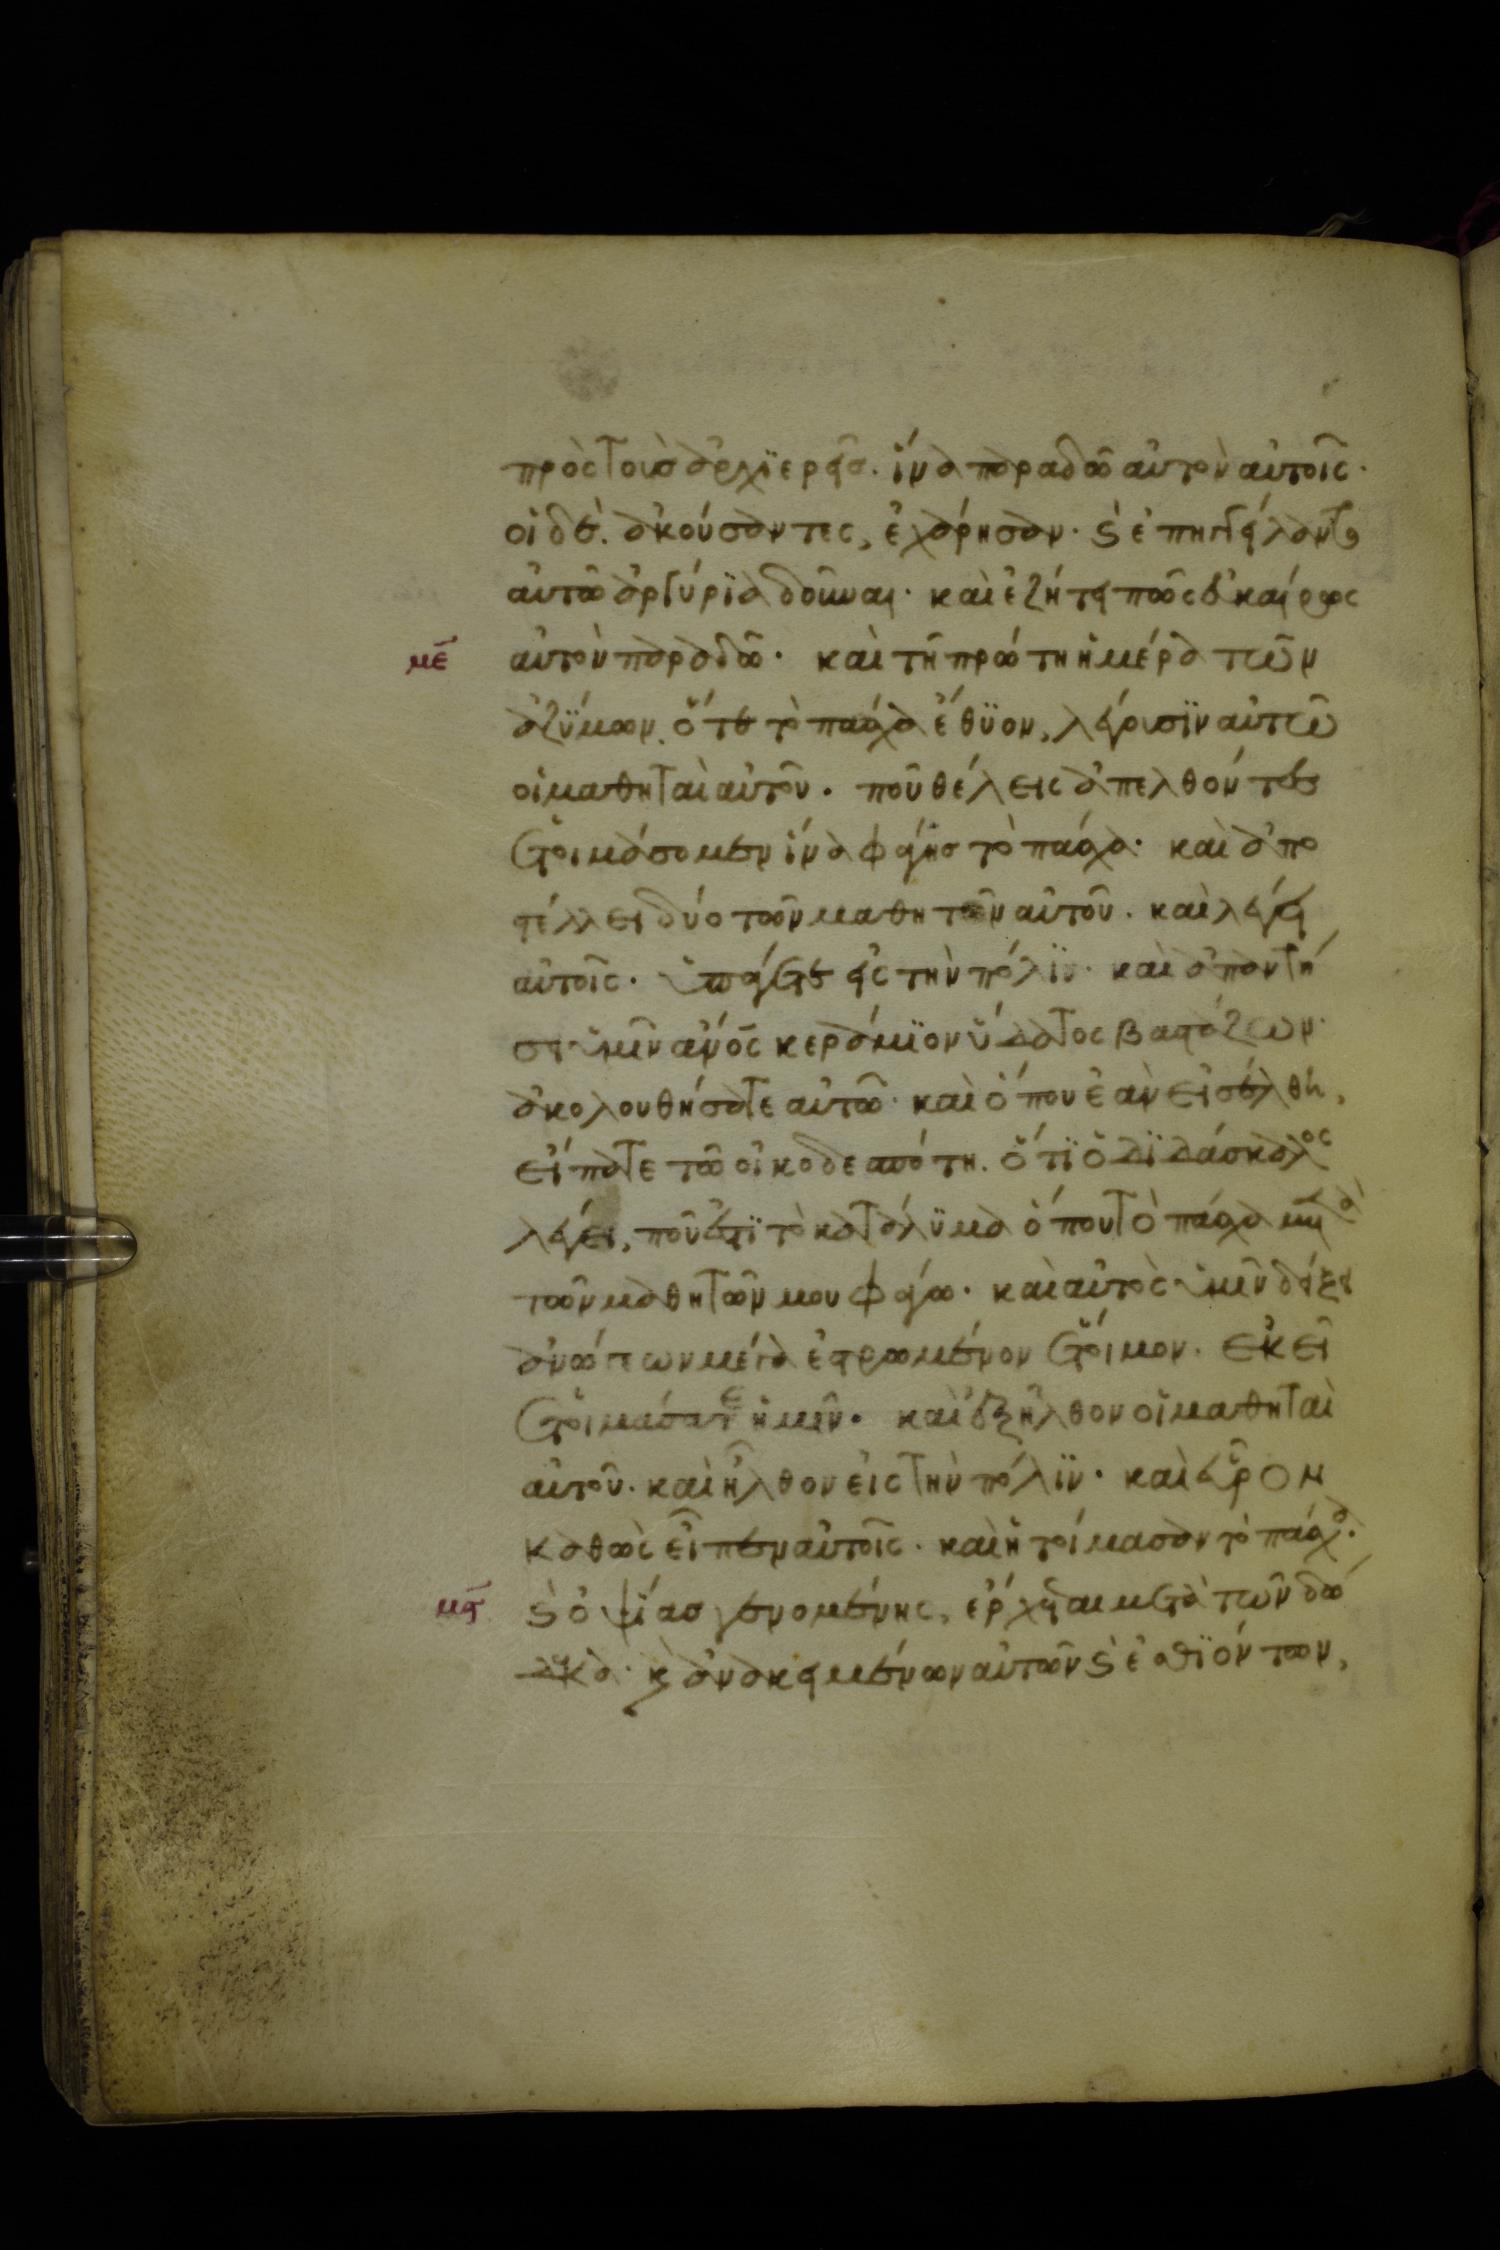 πρὸς τοὺς ἀρχϊερεῖς· ἵνα παραδῶ αὐτὸν αὐτοῖς·
οἱ δὲ ἀκούσαντες, ἐχάρησαν· ϛ̀ ἐπηγγείλαντο
αὐτῶ ἀργύρϊα δοῦναι· καὶ ἐζήτει πῶς εὐκαίρως
με̄ αὐτὸν παραδῶ· καὶ τῆ πρώτη ἡμέρα τῶν
ἀζΰμων. ὅτε τὸ πάσχα ἔθϋον, λέγουσϊν αὐτῶ
οἱ μαθηταὶ αὐτοῦ· ποῦ θέλεις ἀπελθόντες
ἑτοιμάσομεν ἵνα φάγης τὸ πάσχα· καὶ ἀπο
στέλλει δύο τῶν μαθητῶν αὐτοῦ· καὶ λέγει
αὐτοῖς· ὑπάγετε εἰς τὴν πόλϊν· καὶ ἀπαντή
σει ὑμῖν ἄνο̄ς κεράμϊον ὕδατος βαστάζων·
ἀκολουθήσατε αὐτῶ· καὶ ὅπου ἐὰν εἰσέλθη,
εἴπατε τῶ οἰκοδεσπότη. ὅτϊ ὁ δϊδάσκαλος
λέγει, ποῦ ἐστϊ τὸ κατάλϋμα ὅπου τὸ πάσχα μετὰ
τῶν μαθητῶν μου φάγω· καὶ αὐτὸς ὑμῖν δείξει
ἀνώγεων μέγα ἐστρωμένον ἕτοιμον· ἐκεῖ
ἑτοιμάσατε ἡμῖν· καὶ ἐξῆλθον οἱ μαθηταὶ
αὐτοῦ· καὶ ἦλθον εἰς τὴν πόλϊν· καὶ εὗρον
καθὼς εἶπεν αὐτοῖς· καὶ ἡτοίμασαν τὸ πάσχα·
μϛ̄ ϛ̀ ὀψίας γενομένης, ἔρχεται μετὰ τῶν δώ
δεκα· κ̀ ἀνακειμένων αὐτῶν ϛ̀ ἐσθϊόντων,